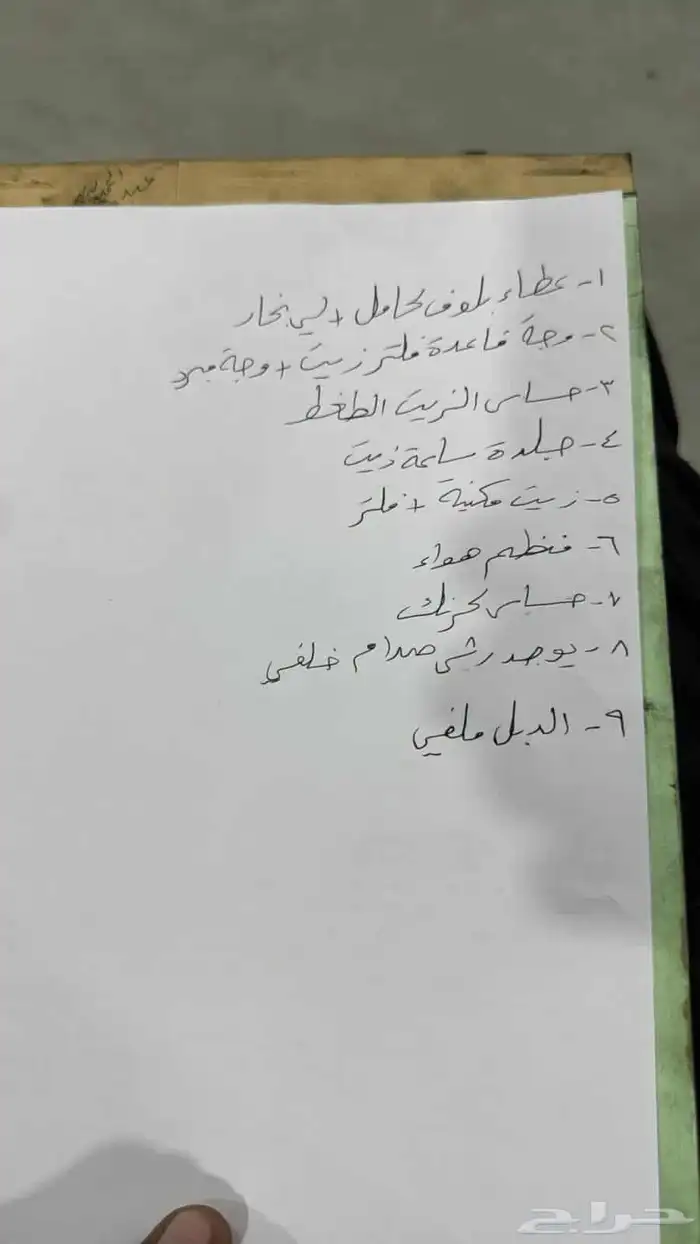 ١- عطاء بلوف كامل + لي بخار
٢- وجة قاعدة فلتر زيت + وجة مبرد
٣- حساس الزيت الطغط
٤- جلدة ساعة زيت
٥- زيت مكنية + فلتر
٦- منظم هواء
٧- حساس كرنك
٨- يوجد رش صدام خلفي
٩- الدبل ملغي
حراج